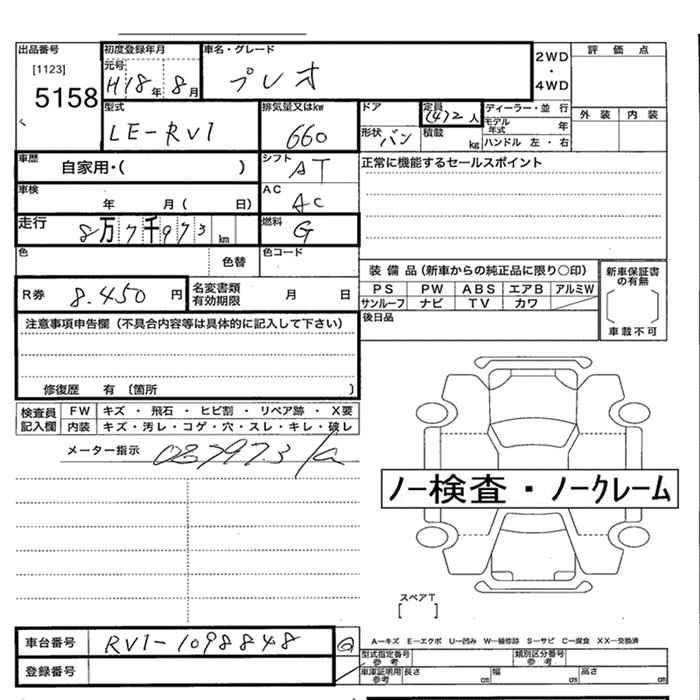 出品番号 初度登録年月 車名・グレード
[1123] 元号 2WD・4WD 評価点
5158 H18年 8月 プレオ
型式 排気量又はkw ドア 定員 (4)2人 ディーラー・並行 外装 内装
LE-RV1 660 形状 バン 積載 kg モデル年式 年
ハンドル 左・右
車歴 自家用・( ) シフト AT 正常に機能するセールスポイント
車検 年 月( 日) AC AC
走行 8万7千973km 燃料 G
色 色替 色コード
装備品(新車からの純正品に限り○印) 新車保証書の有無
R券 8.450円 名変書類有効期限 月 日 PS PW ABS エアB アルミW
サンルーフ ナビ TV カワ
注意事項申告欄(不具合内容等は具体的に記入して下さい) 後日品 車載不可
修復歴 有 〔箇所 〕
検査員記入欄 FW キズ・飛石・ヒビ割・リペア跡・X要
内装 キズ・汚レ・コゲ・穴・スレ・キレ・破レ
メーター指示 087973
ノー検査・ノークレーム
スペアT
[ ]
車台番号 RV1-1098848
A－キズ E－エクボ U－凹み W－補修跡 S－サビ C－腐食 XX－交換済
型式指定番号 参考 類別区分番号 参考
登録番号 車庫証明用 参考 長さ cm 幅 cm 高さ cm